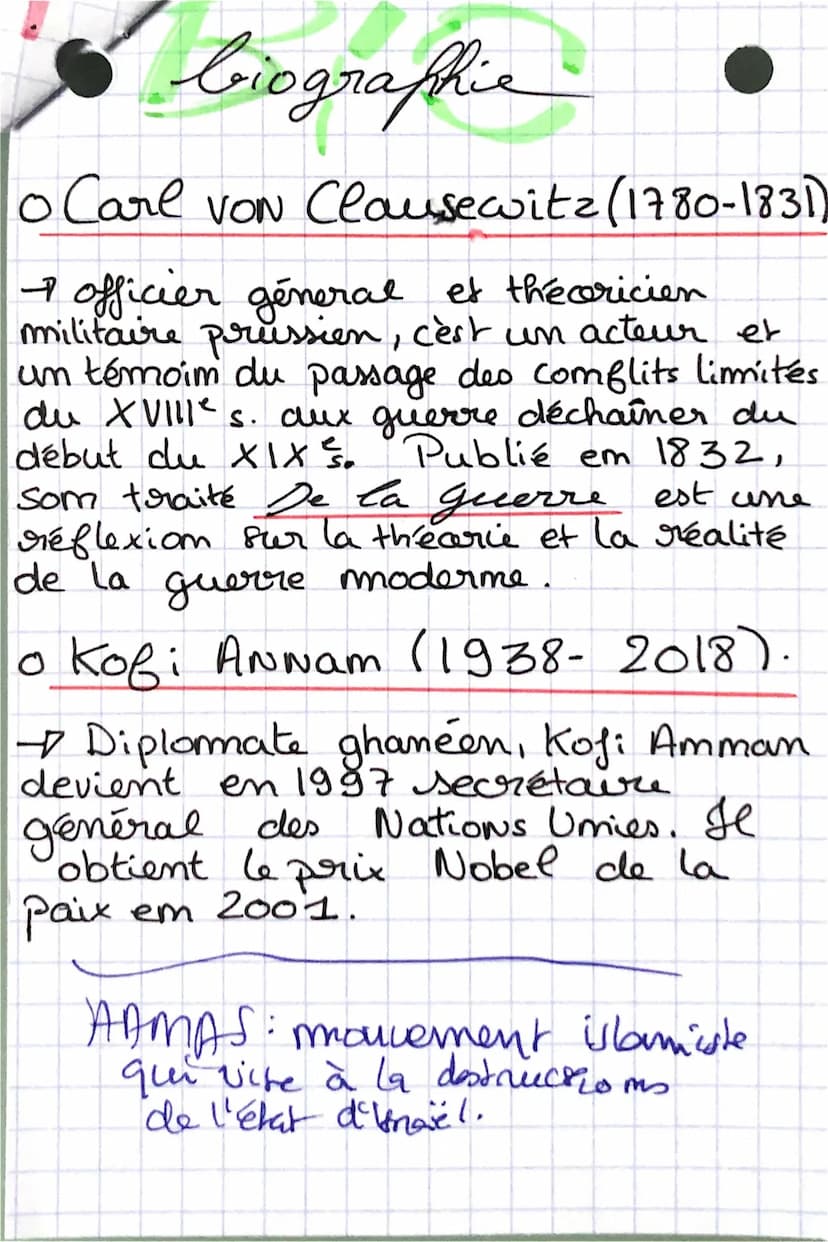 biographie
o Carl von Clausewitz (1780-1831)
→ officier géneral et théoricien
militaire prussien, c'est un acteur et
un témoin du passage des conflits limités
du XVIIIe s. aux guerre déchaîner du
début du XIXe s. Publié en 1832,
son traité De la guerre est une
réflexion sur la théorie et la réalité
de la guerre moderne.
o Kofi Annam (1938- 2018).
→ Diplomate ghanéen, Kofi Amman
devient en 1997 secrétaire
général des Nations Unies. Il
obtient le prix Nobel de la
paix en 2001.
HAMAS : mouvement islamiste
qui vise à la destructions
de l'état d'Israël.